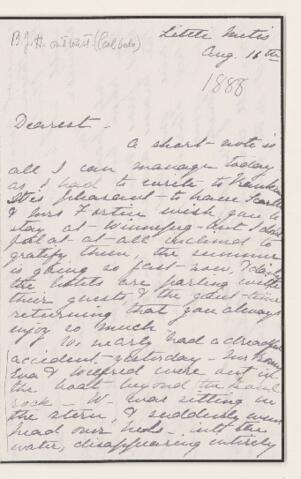 Little Metis
Aug. 16th
1888
Dearest -
A short note is
all I can manage today
as I had to write to Frank.
It is pleasant to have
& Mrs Fortin wish you to
stay at Winnipeg - but I don't
feel at all inclined to
gratify them, the summer
is going so fast now,
the hotels are parting with
their guests, & the quiet time
returning that you always
enjoy so much.
We nearly had a dreadful
accident yesterday -
Eva & Wilfred were out in
the boat beyond the
rock - W. was sitting in
the stern, & suddenly went
head over heels into the
water, disappearing entirely